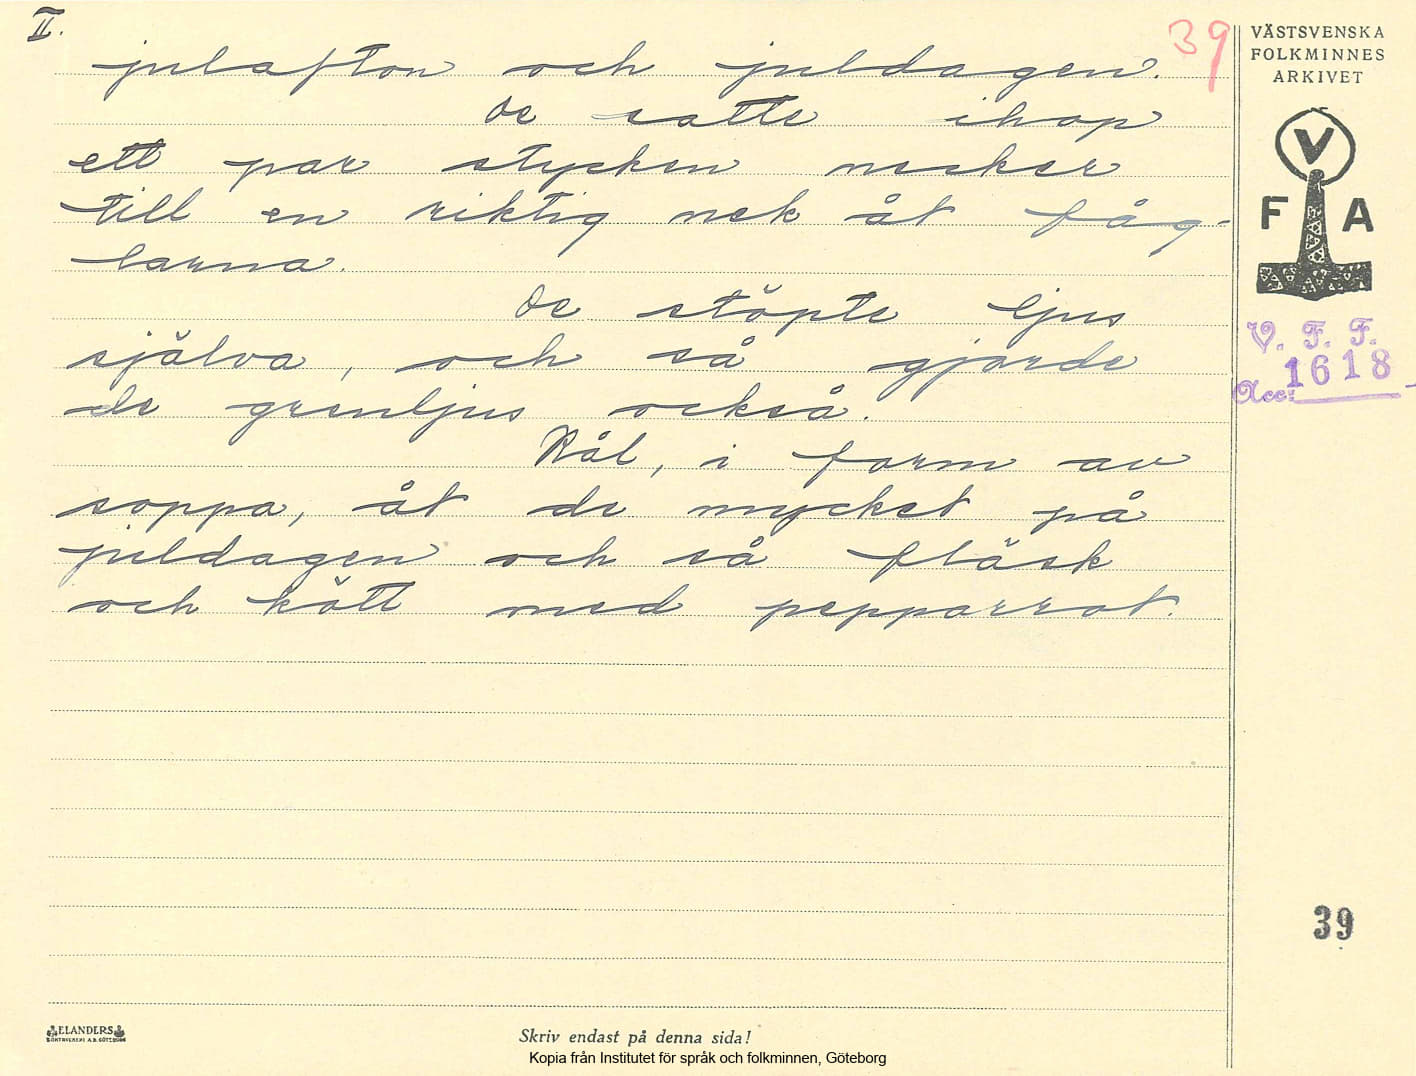 II.
39
julafton och juldagen.
De satte ihop
ett par stycken necker
till en riktig nek åt fåg-
larna.
De stöpte ljus
själva, och så gjorde
de grenljus också.
Kål, i form av
soppa, åt de mycket på
juldagen och så fläsk
och kött med pepparrot.
VÄSTSVENSKA
FOLKMINNES
ARKIVET
V
F A
V. F. F.
Acc: 1618
39
ELANDERS
BOKTRYCKERI A.B. GÖTEBORG
Skriv endast på denna sida!
Kopia från Institutet för språk och folkminnen, Göteborg